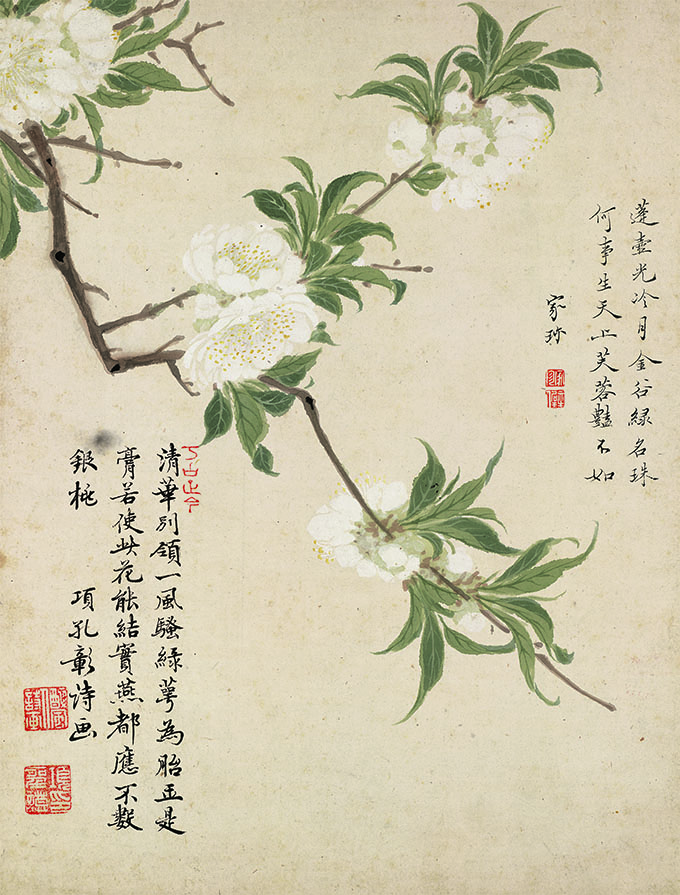 蓬壺光冷月金谷綠名珠
何事生天上芙蓉豔不如
清華別領一風騷綠萼為胎玉是
膏若使此花能結實燕都應不數
銀桃　項孔彰詩画